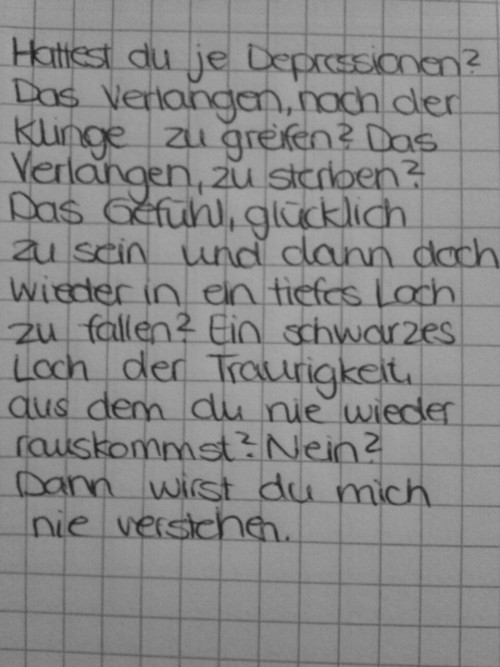 Hattest du je Depressionen?
Das Verlangen, nach der
Klinge zu greifen? Das
Verlangen, zu sterben?
Das Gefühl, glücklich
zu sein und dann doch
wieder in ein tiefes Loch
zu fallen? Ein schwarzes
Loch der Traurigkeit,
aus dem du nie wieder
rauskommst? Nein?
Dann wirst du mich
nie verstehen.